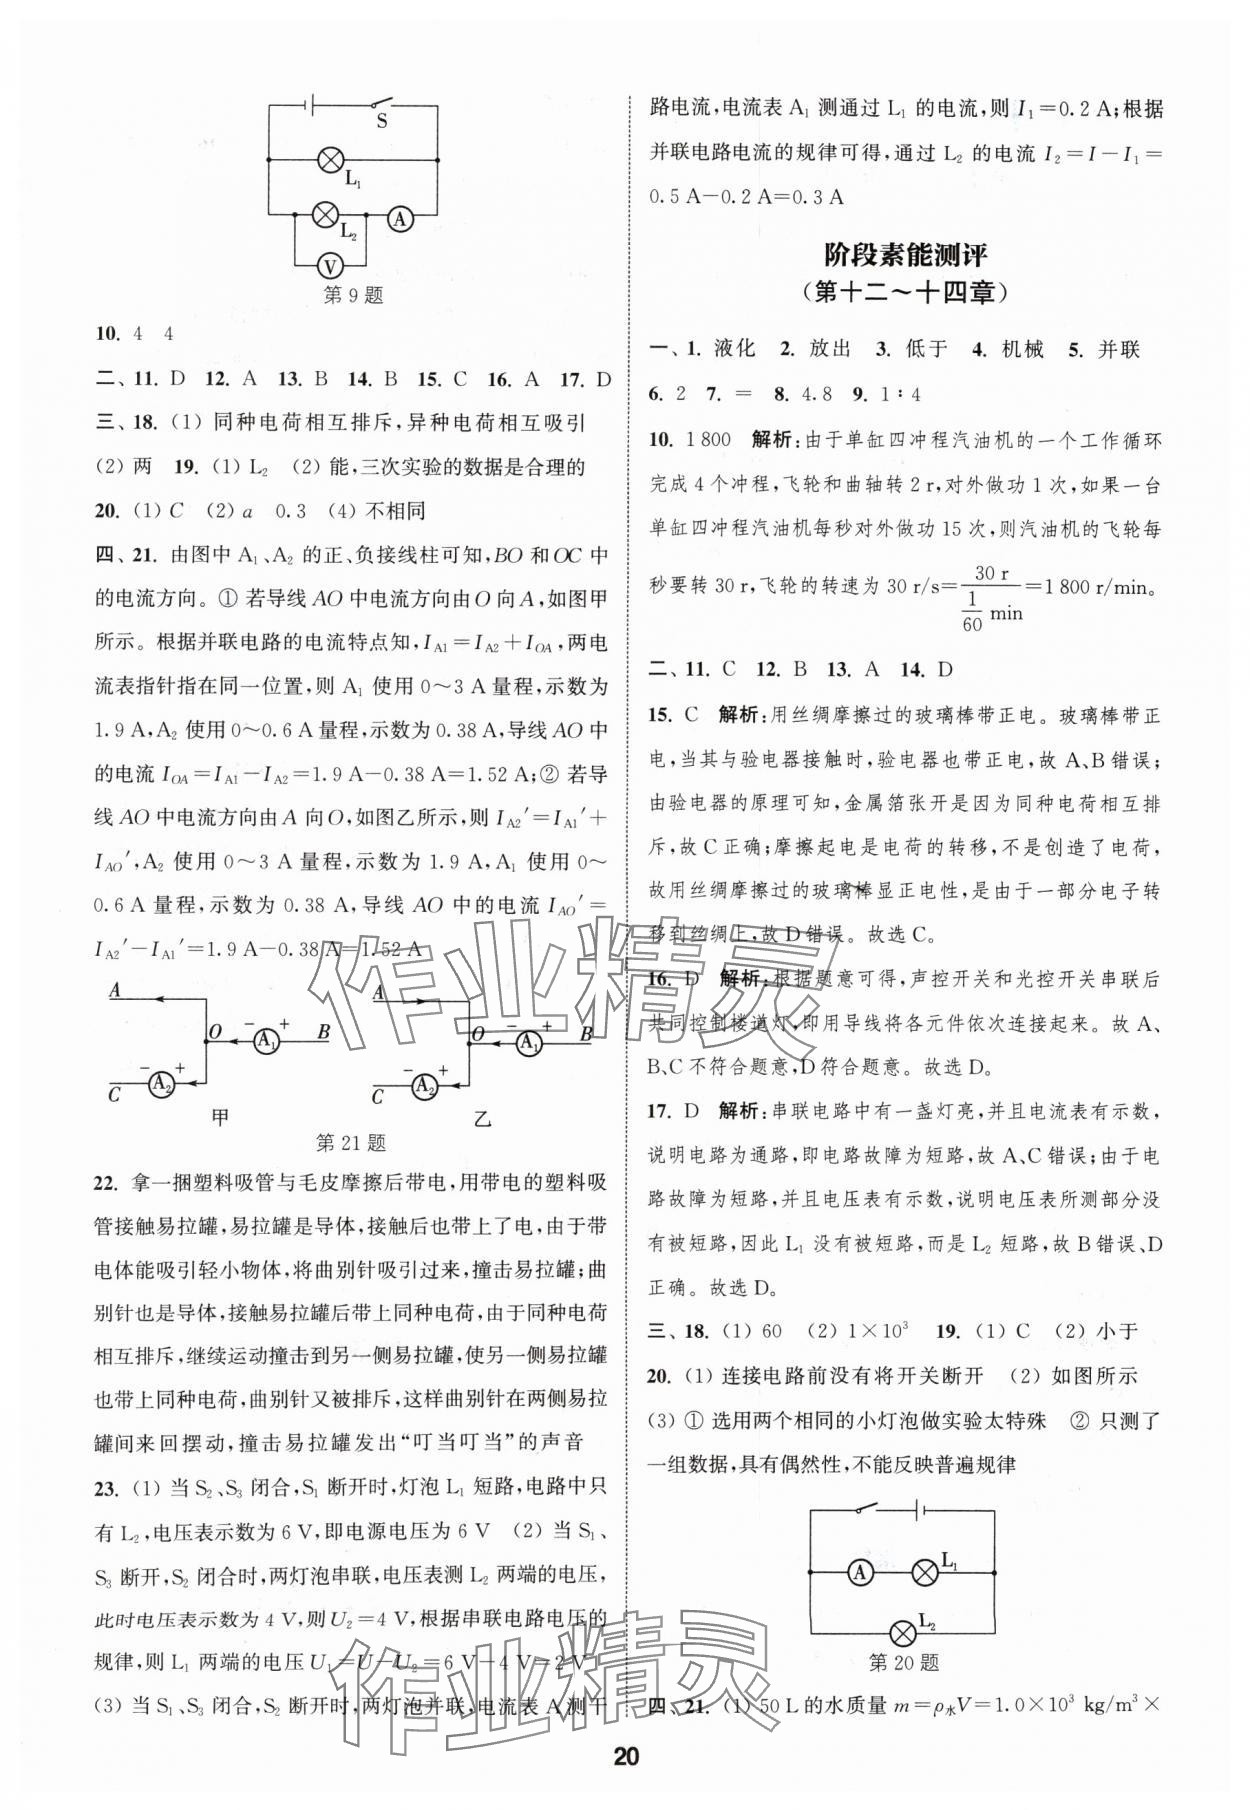 S
L₁
L₂
A
V
第 9 题
10. 4　4
二、11. D　12. A　13. B　14. B　15. C　16. A　17. D
三、18. (1) 同种电荷相互排斥,异种电荷相互吸引
(2) 两　19. (1) L₂　(2) 能,三次实验的数据是合理的
20. (1) C　(2) a　0.3　(4) 不相同
四、21. 由图中 A₁、A₂ 的正、负接线柱可知,BO 和 OC 中
的电流方向。① 若导线 AO 中电流方向由 O 向 A,如图甲
所示。根据并联电路的电流特点知,I_A1＝I_A2＋I_OA,两电
流表指针指在同一位置,则 A₁ 使用 0～3 A 量程,示数为
1.9 A,A₂ 使用 0～0.6 A 量程,示数为 0.38 A,导线 AO 中
的电流 I_OA＝I_A1－I_A2＝1.9 A－0.38 A＝1.52 A;② 若导
线 AO 中电流方向由 A 向 O,如图乙所示,则 I_A2′＝I_A1′＋
I_AO′,A₂ 使用 0～3 A 量程,示数为 1.9 A,A₁ 使用 0～
0.6 A 量程,示数为 0.38 A,导线 AO 中的电流 I_AO′＝
I_A2′－I_A1′＝1.9 A－0.38 A＝1.52 A
A　O　－　A₁　＋　B　C　－　A₂　＋
甲
A　O　－　A₁　＋　B　C　－　A₂　＋
乙
第 21 题
22. 拿一捆塑料吸管与毛皮摩擦后带电,用带电的塑料吸
管接触易拉罐,易拉罐是导体,接触后也带上了电,由于带
电体能吸引轻小物体,将曲别针吸引过来,撞击易拉罐;曲
别针也是导体,接触易拉罐后带上同种电荷,由于同种电荷
相互排斥,继续运动撞击到另一侧易拉罐,使另一侧易拉罐
也带上同种电荷,曲别针又被排斥,这样曲别针在两侧易拉
罐间来回摆动,撞击易拉罐发出“叮当叮当”的声音
23. (1) 当 S₂、S₃ 闭合,S₁ 断开时,灯泡 L₁ 短路,电路中只
有 L₂,电压表示数为 6 V,即电源电压为 6 V　(2) 当 S₁、
S₃ 断开,S₂ 闭合时,两灯泡串联,电压表测 L₂ 两端的电压,
此时电压表示数为 4 V,则 U₂＝4 V,根据串联电路电压的
规律,则 L₁ 两端的电压 U₁＝U－U₂＝6 V－4 V＝2 V
(3) 当 S₁、S₃ 闭合,S₂ 断开时,两灯泡并联,电流表 A 测干
路电流,电流表 A₁ 测通过 L₁ 的电流,则 I₁＝0.2 A;根据
并联电路电流的规律可得,通过 L₂ 的电流 I₂＝I－I₁＝
0.5 A－0.2 A＝0.3 A
阶段素能测评
(第十二～十四章)
一、1. 液化　2. 放出　3. 低于　4. 机械　5. 并联
6. 2　7. ＝　8. 4.8　9. 1∶4
10. 1 800　解析:由于单缸四冲程汽油机的一个工作循环
完成 4 个冲程,飞轮和曲轴转 2 r,对外做功 1 次,如果一台
单缸四冲程汽油机每秒对外做功 15 次,则汽油机的飞轮每
秒要转 30 r,飞轮的转速为 30 r/s＝30 r/(1/60 min)＝1 800 r/min。
二、11. C　12. B　13. A　14. D
15. C　解析:用丝绸摩擦过的玻璃棒带正电。玻璃棒带正
电,当其与验电器接触时,验电器也带正电,故 A、B 错误;
由验电器的原理可知,金属箔张开是因为同种电荷相互排
斥,故 C 正确;摩擦起电是电荷的转移,不是创造了电荷,
故用丝绸摩擦过的玻璃棒显正电性,是由于一部分电子转
移到丝绸上,故 D 错误。故选 C。
16. D　解析:根据题意可得,声控开关和光控开关串联后
共同控制楼道灯,即用导线将各元件依次连接起来。故 A、
B、C 不符合题意,D 符合题意。故选 D。
17. D　解析:串联电路中有一盏灯亮,并且电流表有示数,
说明电路为通路,即电路故障为短路,故 A、C 错误;由于电
路故障为短路,并且电压表有示数,说明电压表所测部分没
有被短路,因此 L₁ 没有被短路,而是 L₂ 短路,故 B 错误、D
正确。故选 D。
三、18. (1) 60　(2) 1×10³　19. (1) C　(2) 小于
20. (1) 连接电路前没有将开关断开　(2) 如图所示
(3) ① 选用两个相同的小灯泡做实验太特殊　② 只测了
一组数据,具有偶然性,不能反映普遍规律
A
L₁
L₂
第 20 题
四、21. (1) 50 L 的水质量 m＝ρ水V＝1.0×10³ kg/m³×
20
作业精灵
作业精灵